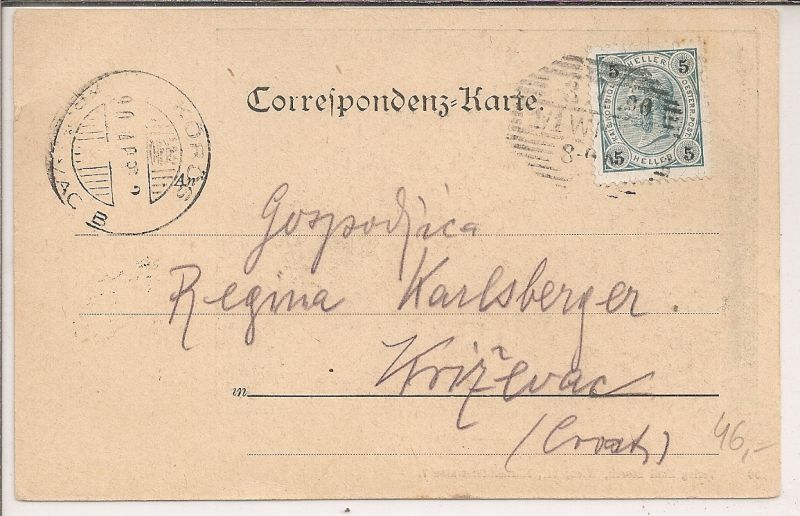 Correspondenz-Karte.
5 HELLER 5
OESTERR. POST
5 HELLER 5
KÖRÖS
B
Gospodjica
Regina Karlsberger.
in Križevac
(Croat)
46,-